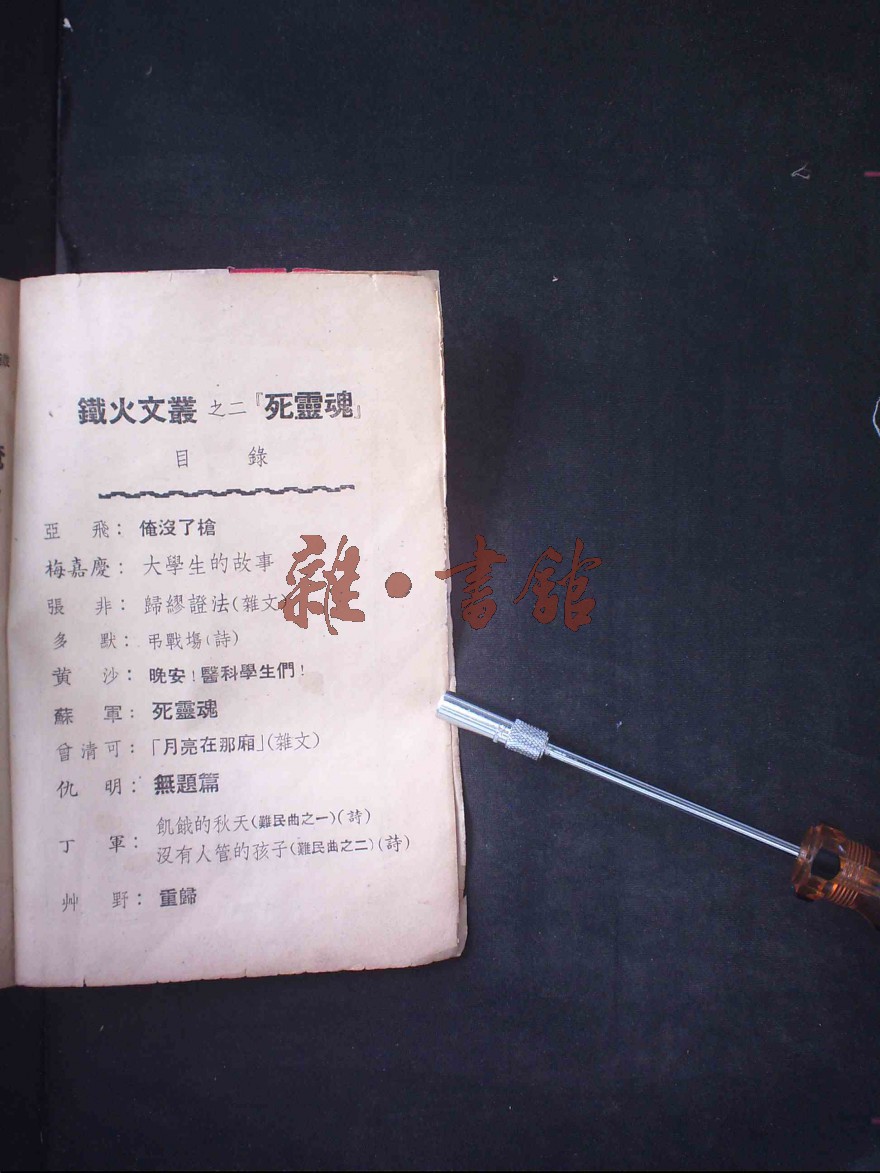 鐵火文叢 之二『死靈魂』
目 錄
亞 飛：俺沒了槍
梅嘉慶：大學生的故事
張 非：歸繆證法(雜文)
多 默：弔戰場(詩)
黄 沙：晚安！醫科學生們！
蘇 軍：死靈魂
曾清可：「月亮在那廂」(雜文)
仇 明：無題篇
丁 軍：飢餓的秋天(難民曲之一)(詩)
沒有人管的孩子(難民曲之二)(詩)
艸 野：重歸
雜·書館